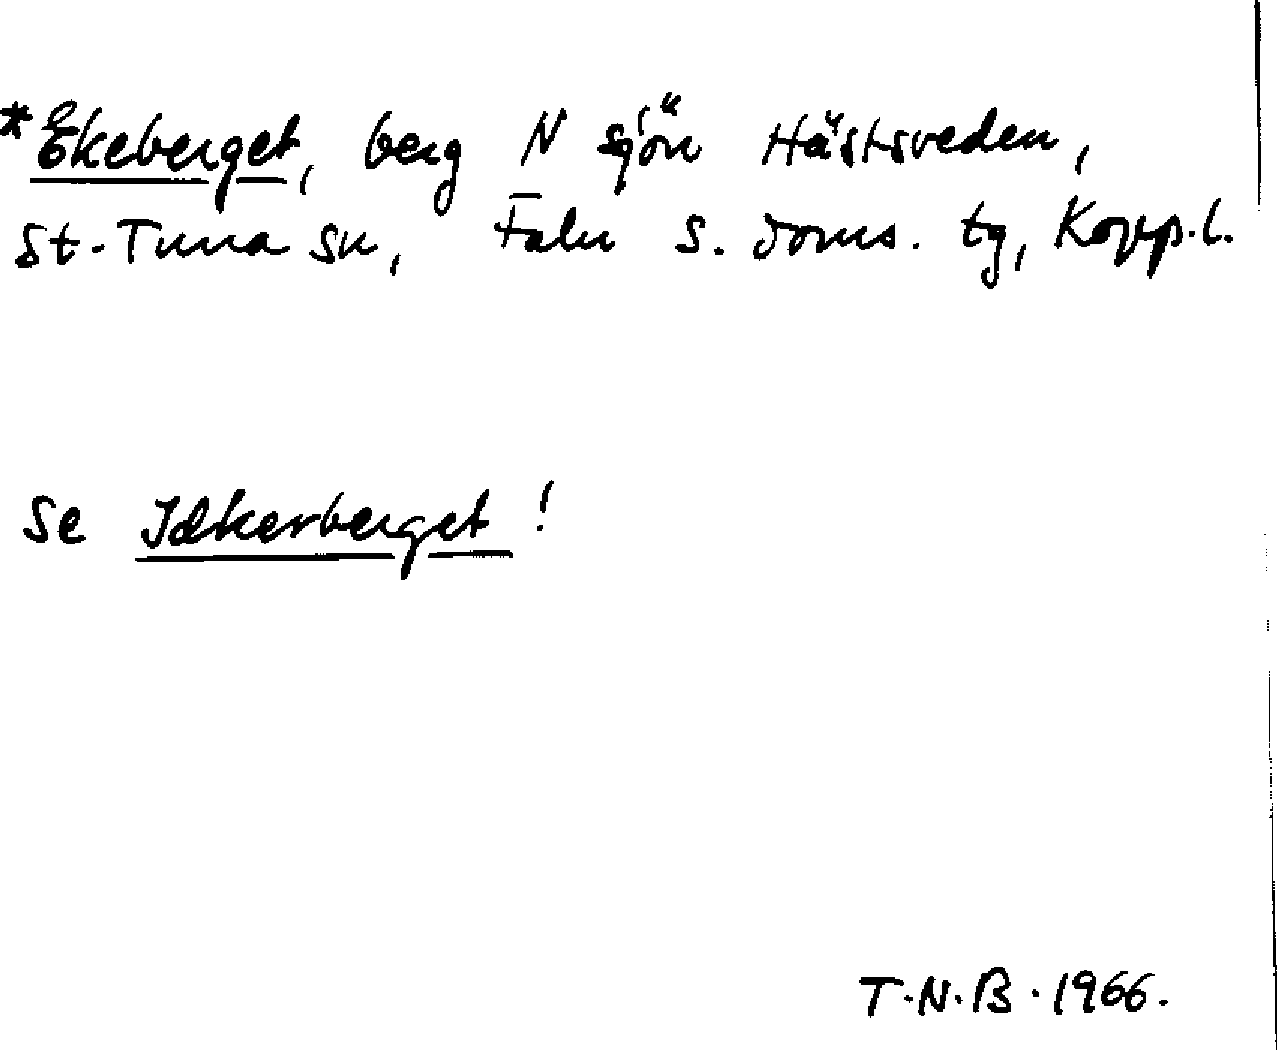 *Ekeberget, berg N sjön Hästsveden,
St. Tuna sn, Falu S. doms. tg, Kopp.l.
Se Idkerberget!
T.N.B. 1966.